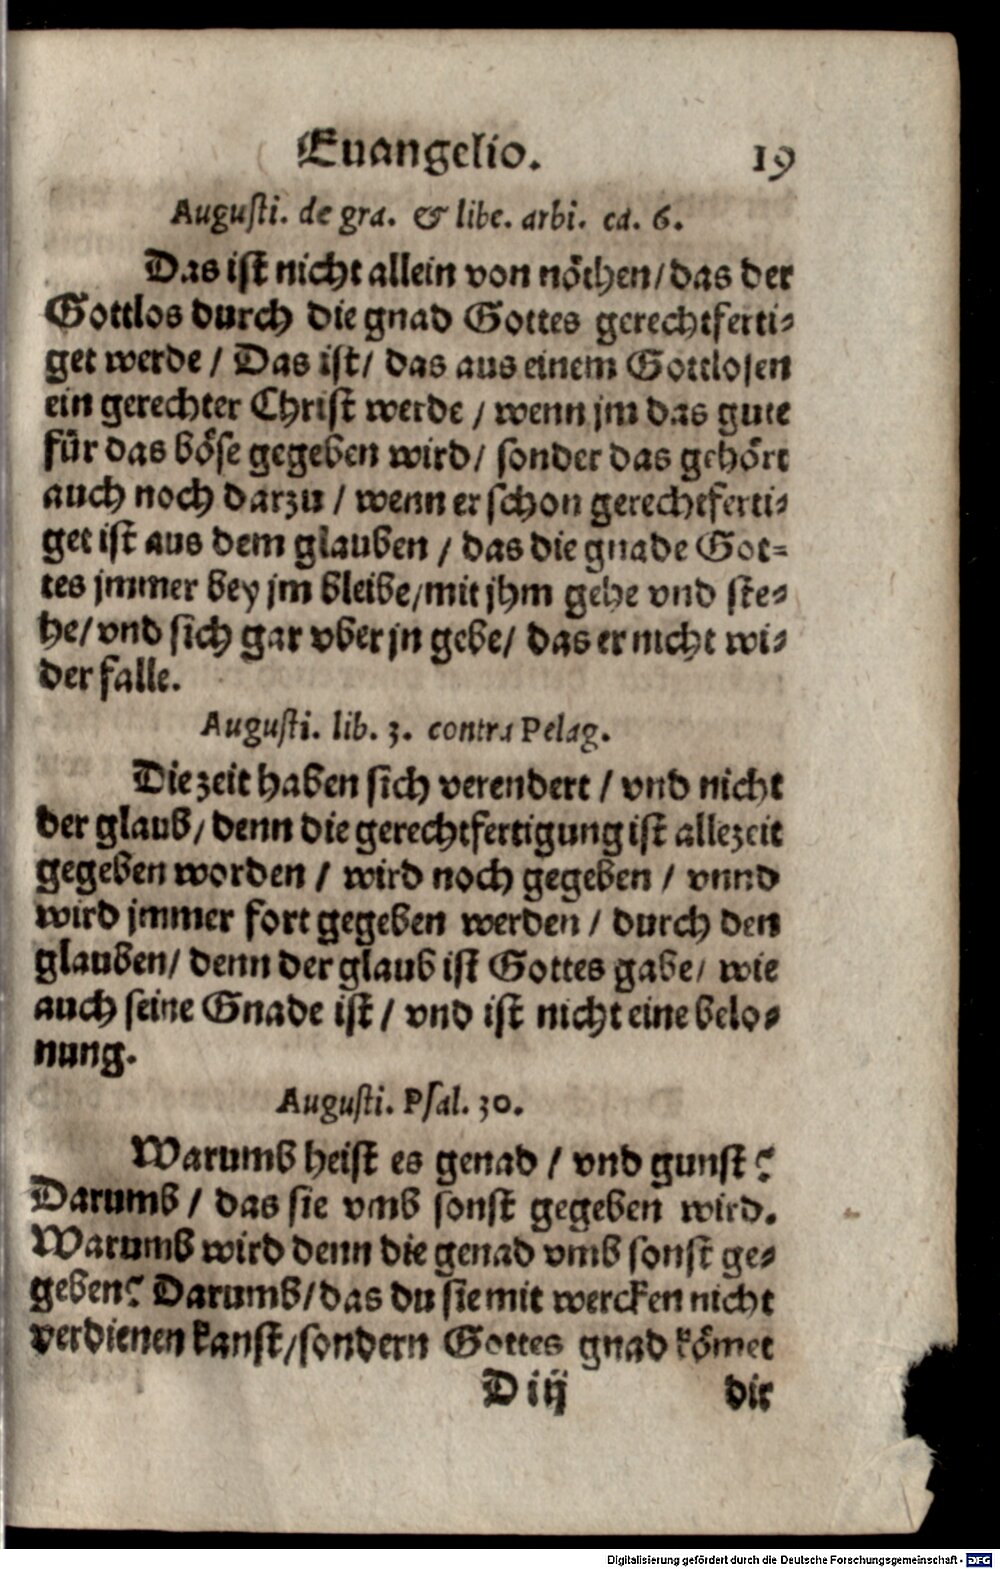 Euangelio. 19
Augusti. de gra. & libe. arbi. ca. 6.
Das ist nicht allein von nöthen/das der
Gottlos durch die gnad Gottes gerechtferti-
get werde / Das ist/ das aus einem Gottlosen
ein gerechter Christ werde / wenn jm das gute
für das böse gegeben wird/ sonder das gehört
auch noch darzu / wenn er schon gerechtferti-
get ist aus dem glauben / das die gnade Got-
tes jmmer bey jm bleibe/mit jhm gehe vnd ste-
he/vnd sich gar vber jn gebe/ das er nicht wi-
der falle.
Augusti. lib. 3. contra Pelag.
Die zeit haben sich verendert / vnd nicht
der glaub/denn die gerechtfertigung ist allezeit
gegeben worden / wird noch gegeben / vnnd
wird jmmer fort gegeben werden / durch den
glauben/ denn der glaub ist Gottes gabe/ wie
auch seine Gnade ist / vnd ist nicht eine belo-
nung.
Augusti. Psal. 30.
Warumb heist es genad / vnd gunst?
Darumb / das sie vmb sonst gegeben wird.
Warumb wird denn die genad vmb sonst ge-
geben? Darumb/das du sie mit wercken nicht
verdienen kanst/sondern Gottes gnad kömet
D iij dir
Digitalisierung gefördert durch die Deutsche Forschungsgemeinschaft - DFG